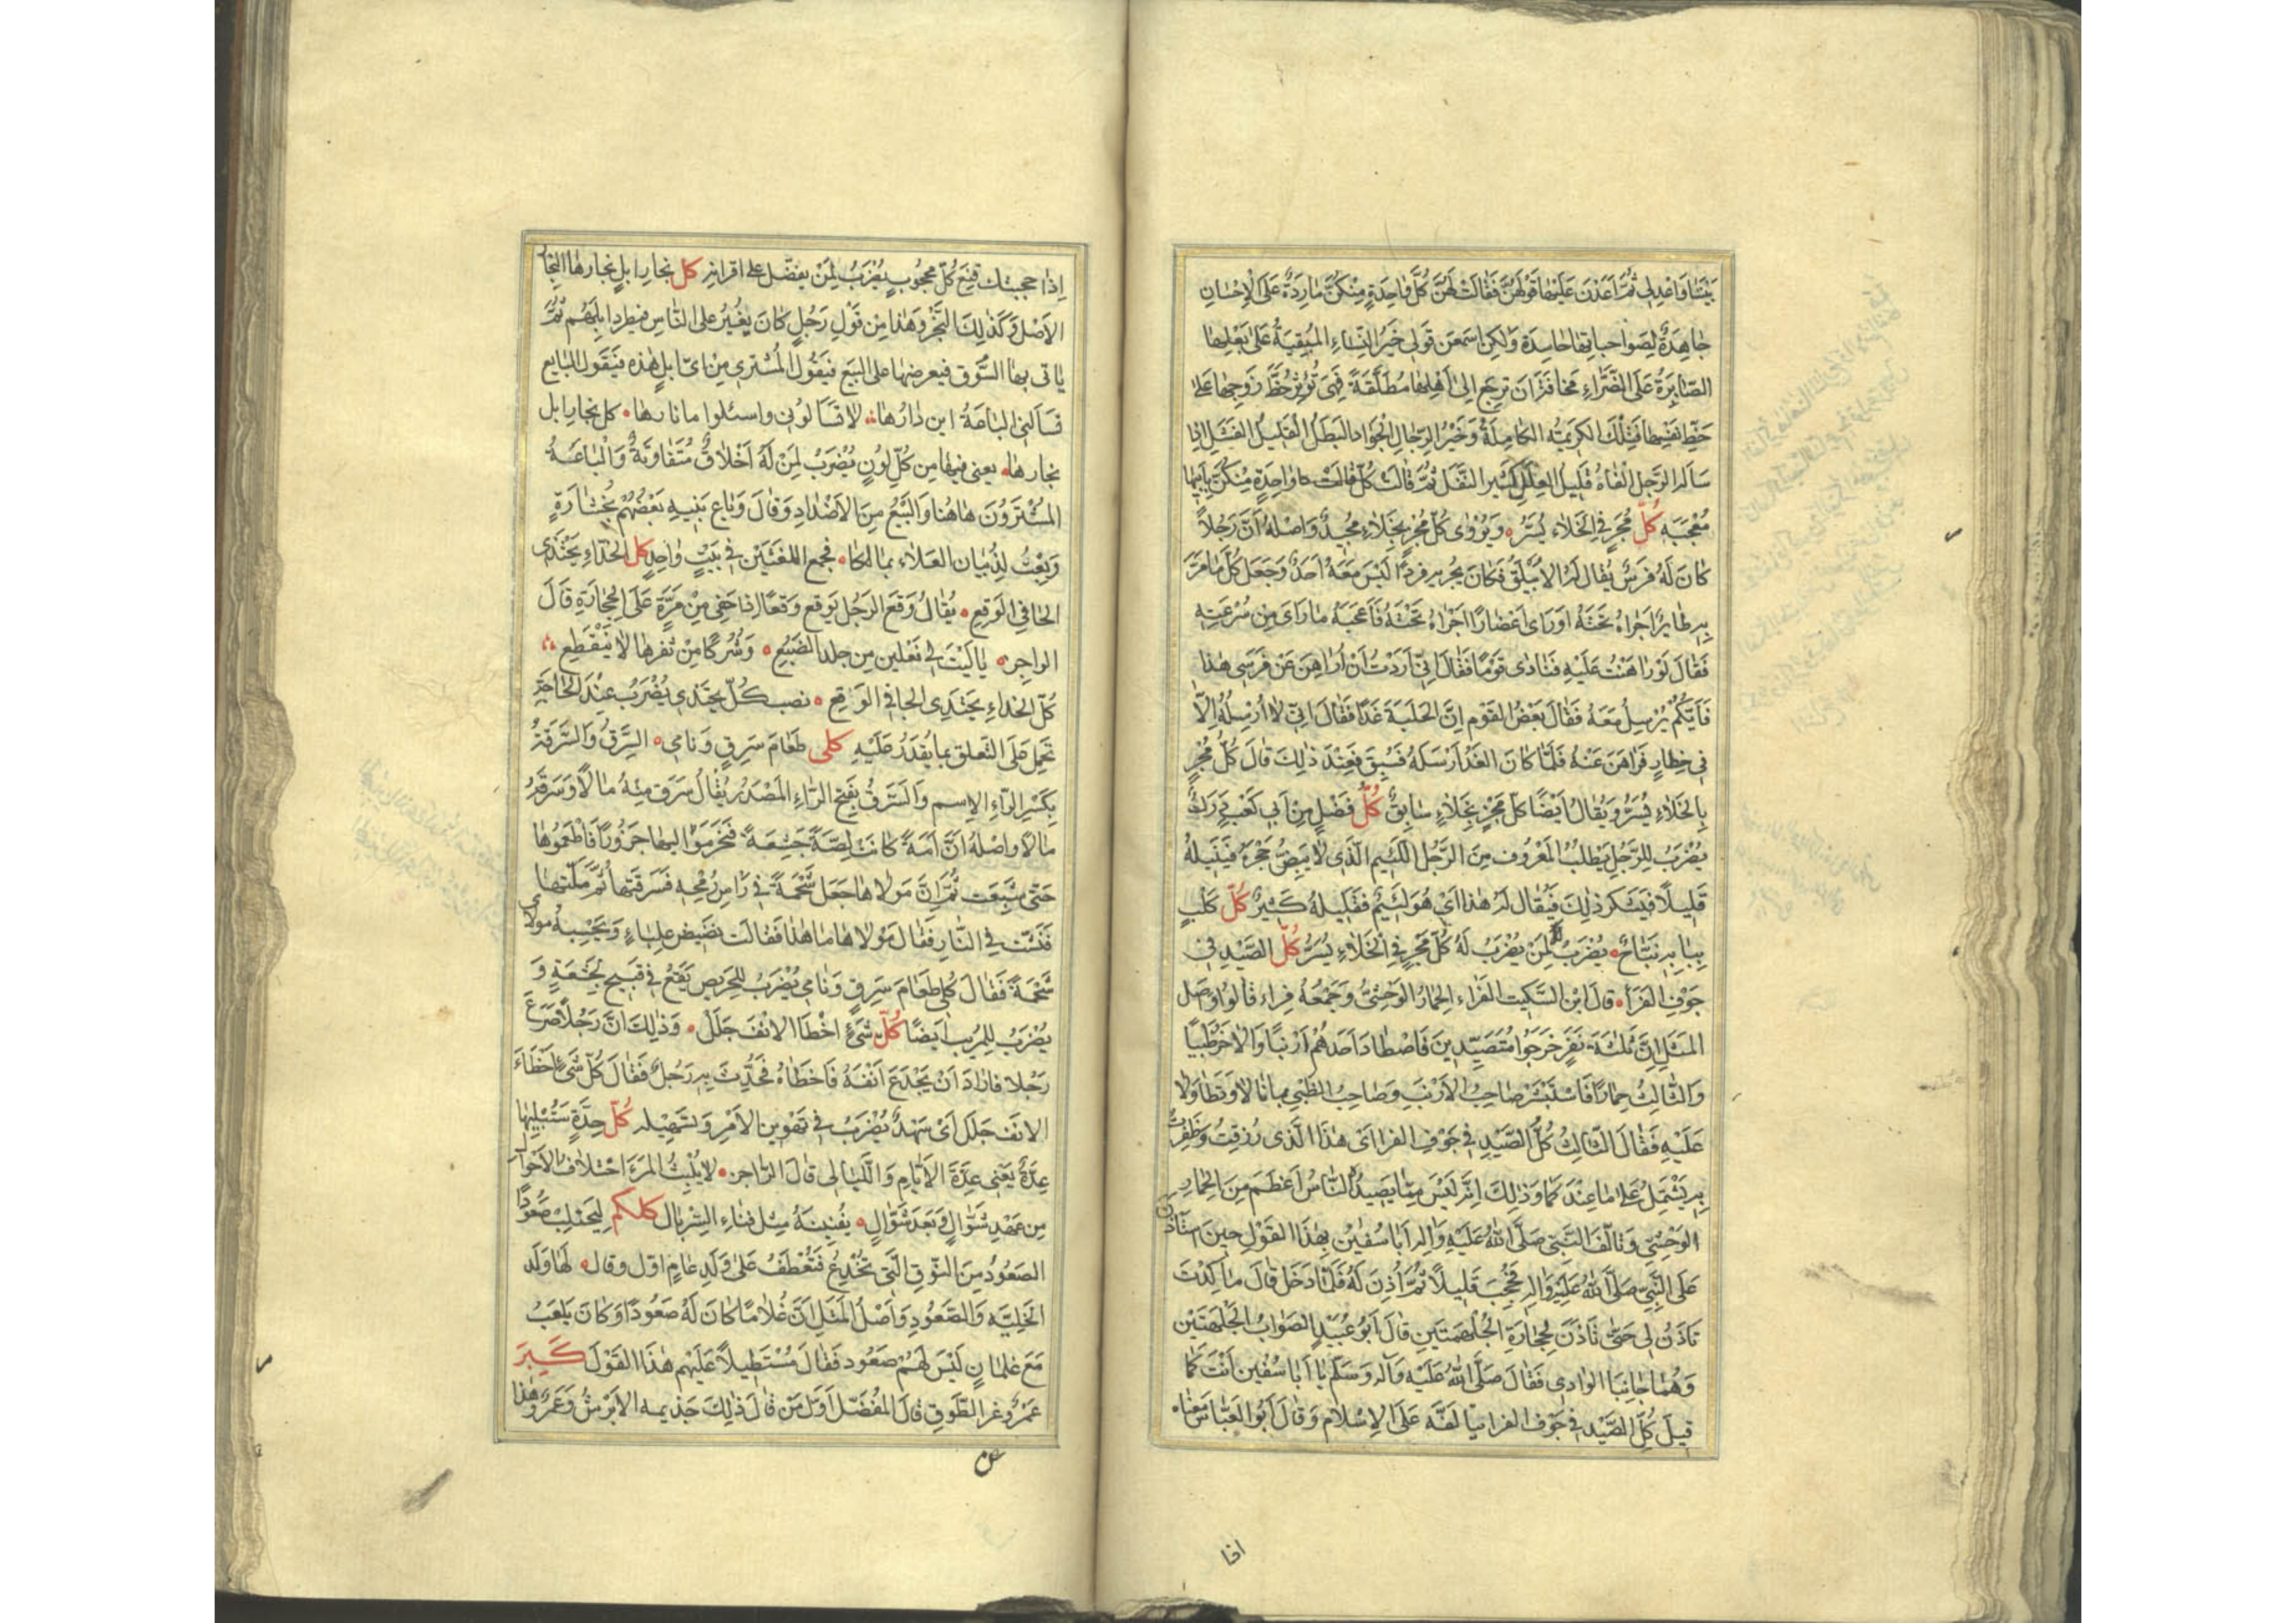 بَيْتَنَا وَاغْدِلِي ثُمَّ اَعَدْنَ عَلَيْهَا قَوْلَهُنَّ فَقَالَتْ لَهُنَّ كُلُّ وَاحِدَةٍ مِنْكُنَّ مَارِدَةٌ عَلَى الْاِحْسَانِ
جَاهِدَةٌ لِصَوَاحِبَاتِهَا حَاسِدَة وَلٰكِنِ اسْمَعْنَ قَوْلِي خَيْرُ النِّسَاءِ الْمُبْقِيَةُ عَلٰى بَعْلِهَا
الصَّابِرَةُ عَلَى الضَّرَّاءِ مَخَافَةَ اَنْ تَرْجِعَ اِلٰى اَهْلِهَا مُطَلَّقَةً فَهِيَ تُؤْثِرُ حَظَّ زَوْجِهَا عَلٰى
حَظِّ نَفْسِهَا فَتِلْكَ الْكَرِيمَةُ الْكَامِلَةُ وَخَيْرُ الرِّجَالِ الْجَوَادُ الْبَطَلُ الْقَلِيلُ الْفَشَلِ اِذَا
سَاَلَهُ الرَّجُلُ اَلْفَاهُ قَلِيلَ الْعِلَلِ كَثِيرَ النَّفَلِ ثُمَّ قَالَتْ كُلُّ وَاحِدَةٍ مِنْكُنَّ بِاَبِيهَا
مُعْجَبَة كُلُّ مُجْرٍ فِي الْخَلَاءِ يُسَرُّ وَيُرْوٰى كُلُّ مُجْرٍ بِخَلَاءٍ مُجِيدٌ وَاَصْلُهُ اَنَّ رَجُلًا
كَانَ لَهُ فَرَسٌ يُقَالُ لَهُ الْاُبَيْلِقُ فَكَانَ يُجْرِيهِ فَرْدًا لَيْسَ مَعَهُ اَحَدٌ وَجَعَلَ كُلَّمَا مَرَّ
بِهِ طَايِرٌ اَجْرَاهُ تَحْتَهُ اَوْ رَاٰى اِعْصَارًا اَجْرَاهُ تَحْتَهُ فَاَعْجَبَهُ مَا رَاٰى مِنْ سُرْعَتِهِ
فَقَالَ لَوْ رَاهَنْتُ عَلَيْهِ فَنَادٰى قَوْمًا فَقَالَ اِنِّي اَرَدْتُ اَنْ اُرَاهِنَ عَنْ فَرَسِي هٰذَا
فَاَيُّكُمْ يُرْسِلُ مَعَهُ فَقَالَ بَعْضُ الْقَوْمِ اِنَّ الْحَلْبَةَ غَدًا فَقَالَ اِنِّي لَا اُرْسِلُهُ اِلَّا
فِي خِطَارٍ فَرَاهَنَ عَنْهُ فَلَمَّا كَانَ الْغَدُ اَرْسَلَهُ فَسُبِقَ فَعِنْدَ ذٰلِكَ قَالَ كُلُّ مُجْرٍ
بِالْخَلَاءِ يُسَرُّ وَيُقَالُ اَيْضًا كُلُّ مُجْرٍ بِخَلَاءٍ سَابِقٌ كُلُّ فَضْلٍ مِنْ اَبِي كَعْبٍ دَرَكٌ
يُضْرَبُ لِلرَّجُلِ يَطْلُبُ الْمَعْرُوفَ مِنَ الرَّجُلِ اللَّئِيمِ الَّذِي لَا يَبِضُّ حَجَرُهُ فَيُنِيلُهُ
قَلِيلًا فَيَشْكُرُ ذٰلِكَ فَيُقَالُ لَهُ هٰذَا اَيْ هُوَ لَئِيمٌ فَقَلِيلُهُ كَثِيرٌ كُلُّ كَلْبٍ
بِبَابِهِ نَبَّاحٌ يُضْرَبُ لِمَنْ يُضْرَبُ لَهُ كُلُّ مُجْرٍ فِي الْخَلَاءِ يُسَرُّ كُلُّ الصَّيْدِ فِي
جَوْفِ الْفَرَاِ قَالَ ابْنُ السِّكِّيتِ الْفَرَاءُ الْحِمَارُ الْوَحْشِيُّ وَجَمْعُهُ فِرَاءٌ قَالُوا وَاَصْلُ
الْمَثَلِ اَنَّ ثَلٰثَةَ نَفَرٍ خَرَجُوا مُتَصَيِّدِينَ فَاصْطَادَ اَحَدُهُمْ اَرْنَبًا وَالْاٰخَرُ ظَبْيًا
وَالثَّالِثُ حِمَارًا فَاسْتَبْشَرَ صَاحِبُ الْاَرْنَبِ وَصَاحِبُ الظَّبْيِ بِمَا نَالَا وَتَطَاوَلَا
عَلَيْهِ فَقَالَ الثَّالِثُ كُلُّ الصَّيْدِ فِي جَوْفِ الْفَرَا اَيْ هٰذَا الَّذِي رُزِقْتُ وَظَفِرْتُ
بِهِ يَشْتَمِلُ عَلٰى مَا عِنْدَكُمَا وَذٰلِكَ اَنَّهُ لَيْسَ مِمَّا يَصِيدُهُ النَّاسُ اَعْظَمَ مِنَ الْحِمَارِ
الْوَحْشِيِّ وَتَاَلَّفَ النَّبِيُّ صَلَّى اللهُ عَلَيْهِ وَاٰلِهِ اَبَا سُفْيٰنَ بِهٰذَا الْقَوْلِ حِينَ اسْتَاْذَنَ
عَلَى النَّبِيِّ صَلَّى اللهُ عَلَيْهِ وَاٰلِهِ فَحُجِبَ قَلِيلًا ثُمَّ اُذِنَ لَهُ فَلَمَّا دَخَلَ قَالَ مَا كِدْتَ
تَاْذَنُ لِي حَتّٰى تَاْذَنَ لِحِجَارَةِ الْجُلْهُمَتَيْنِ قَالَ اَبُو عُبَيْدٍ الصَّوَابُ الْجَلْهَتَيْنِ
وَهُمَا جَانِبَا الْوَادِي فَقَالَ صَلَّى اللهُ عَلَيْهِ وَآلِهِ وَسَلَّمَ يَا اَبَا سُفْيٰنَ اَنْتَ كَمَا
قِيلَ كُلُّ الصَّيْدِ فِي جَوْفِ الْفَرَا يَتَاَلَّفُهُ عَلَى الْاِسْلَامِ وَقَالَ اَبُو الْعَبَّاسِ مَعْنَاهُ
اذا
اِذَا حَجَبْتُكَ قَنِعَ كُلُّ مَحْجُوبٍ يُضْرَبُ لِمَنْ يَفْضُلُ عَلٰى اَقْرَانِهِ كُلُّ نِجَارِ اِبِلٍ نِجَارُهَا النِّجَارُ
الْاَصْلُ وَكَذٰلِكَ النَّجْرُ وَهٰذَا مِنْ قَوْلِ رَجُلٍ كَانَ يُغِيرُ عَلَى النَّاسِ فَيَطْرُدُ اِبِلَهُمْ ثُمَّ
يَاْتِي بِهَا السُّوقَ فَيَعْرِضُهَا عَلَى الْبَيْعِ فَيَقُولُ الْمُشْتَرِي مِنْ اَيِّ اِبِلٍ هٰذِهِ فَيَقُولُ الْبَايِعُ
تَسْاَلُنِي الْبَاعَةُ اَيْنَ دَارُهَا لَا تَسْاَلُونِي وَاسْئَلُوا مَا نَارُهَا كُلُّ نِجَارِ اِبِلٍ
نِجَارُهَا يَعْنِي فِيهَا مِنْ كُلِّ لَوْنٍ يُضْرَبُ لِمَنْ لَهُ اَخْلَاقٌ مُتَفَاوِتَةٌ وَالْبَاعَةُ
الْمُشْتَرُونَ هَاهُنَا وَالْبَيْعُ مِنَ الْاَضْدَادِ وَقَالَ وَبَاعَ بَنِيهِ بَعْضُهُمْ بِخُشَارَةٍ
وَبِعْتَ لِذُبْيَانَ الْعَلَاءَ بِمَالِكَا فَجَمَعَ اللُّغَتَيْنِ فِي بَيْتٍ وَاحِدٍ كُلُّ الْحِذَاءِ يَحْتَذِي
الْحَافِي الْوَقِعِ يُقَالُ وَقِعَ الرَّجُلُ يَوْقَعُ وَقَعًا اِذَا حَفِيَ مِنْ مَرِّهِ عَلَى الْحِجَارَةِ قَالَ
الرَّاجِزُ يَا لَيْتَ لِي نَعْلَيْنِ مِنْ جِلْدِ الضَّبُعِ وَشُرُكًا مِنْ ثَفْرِهَا لَا يَنْقَطِعُ
كُلَّ الْحِذَاءِ يَحْتَذِي الْحَافِي الْوَقِعِ نَصَبَ كُلَّ بِيَحْتَذِي يُضْرَبُ عِنْدَ الْحَاجَةِ
تَحْمِلُ عَلَى التَّعَلُّقِ بِمَا يُقْدَرُ عَلَيْهِ كُلِي طَعَامَ سَرِقٍ وَنَامِي السَّرِقُ وَالسَّرِقَةُ
بِكَسْرِ الرَّاءِ الْاِسْمُ وَالسَّرَقُ بِفَتْحِ الرَّاءِ الْمَصْدَرُ يُقَالُ سَرَقَ مِنْهُ مَالًا وَسَرَقَهُ
مَالًا وَاَصْلُهُ اَنَّ اَمَةً كَانَتْ لِصَّةً جَشِعَةً فَنَحَرَ مَوَالِيهَا جَزُورًا فَاَطْعَمُوهَا
حَتّٰى شَبِعَتْ ثُمَّ اِنَّ مَوْلَاهَا جَعَلَ شَحْمَةً فِي رَاْسِ رُمْحِهِ فَسَرَقَتْهَا ثُمَّ مَلَّتْهَا
فَنَشَّتْ فِي النَّارِ فَقَالَ مَوْلَاهَا مَا هٰذَا فَقَالَتْ نَضِيضُ عِلْبَاءٍ وَيَحْسِبُهُ مَوْلَايَ
شَحْمَةً فَقَالَ كُلِي طَعَامَ سَرِقٍ وَنَامِي يُضْرَبُ لِلْحَرِيصِ يَقَعُ فِي قَبِيحٍ لِجَشَعِهِ وَ
يُضْرَبُ لِلْمُرِيبِ اَيْضًا كُلُّ شَيْءٍ اَخْطَاَ الْاَنْفَ جَلَلٌ وَذٰلِكَ اَنَّ رَجُلًا صَرَعَ
رَجُلًا فَاَرَادَ اَنْ يَجْدَعَ اَنْفَهُ فَاَخْطَاَهُ فَحُدِّثَ بِهِ رَجُلٌ فَقَالَ كُلُّ شَيْءٍ اَخْطَاَءَ
الْاَنْفَ جَلَلٌ اَيْ سَهْلٌ يُضْرَبُ فِي تَهْوِينِ الْاَمْرِ وَتَسْهِيلِهِ كُلُّ جِدَّةٍ سَتُبْلِيهَا
عِدَّةٌ يَعْنِي عِدَّةَ الْاَيَّامِ وَاللَّيَالِي قَالَ الرَّاجِزُ لَا يُلْبِثُ الْمَرْءَ اخْتِلَافُ الْاَحْوَالِ
مِنْ عَهْدِ شَوَّالٍ وَبَعْدَ شَوَّالٍ يُفْنِينَهُ مِثْلَ فَنَاءِ السِّرْبَالِ كُلُّكُمْ لِيَحْتَلِبْ صَعُودًا
الصَّعُودُ مِنَ النُّوقِ الَّتِي تُخْدِجُ فَتُعْطَفُ عَلٰى وَلَدِ عَامٍ اَوَّلَ وَقَالَ لَهَا وَلَدُ
الْخَلِيَّةِ وَالصَّعُودِ وَاَصْلُ الْمَثَلِ اَنَّ غُلَامًا كَانَ لَهُ صَعُودٌ وَكَانَ يَلْعَبُ
مَعَ غِلْمَانٍ لَيْسَ لَهُمْ صَعُودٌ فَقَالَ مُسْتَطِيلًا عَلَيْهِمْ هٰذَا الْقَوْلَ كَبِرَ
عَمْرٌو عَنِ الطَّوْقِ قَالَ الْمُفَضَّلُ اَوَّلُ مَنْ قَالَ ذٰلِكَ جَذِيمَةُ الْاَبْرَشُ وَعَمْرٌو هٰذَا